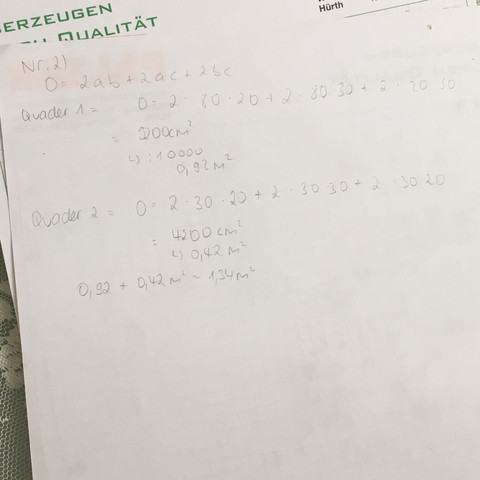 ERZEUGEN
QUALITÄT
Hürth
Nr. 2)
O = 2ab + 2ac + 2bc
Quader 1 = O = 2 · 80 · 20 + 2 · 80 30 + 2 · 20 30
= 9200cm²
↳ : 10000
0,92 m²
Quader 2 = O = 2 · 30 · 20 + 2 · 30 · 30 + 2 · 30 · 20
= 4200 cm²
↳ 0,42 m²
0,92 + 0,42 m² = 1,34 m²